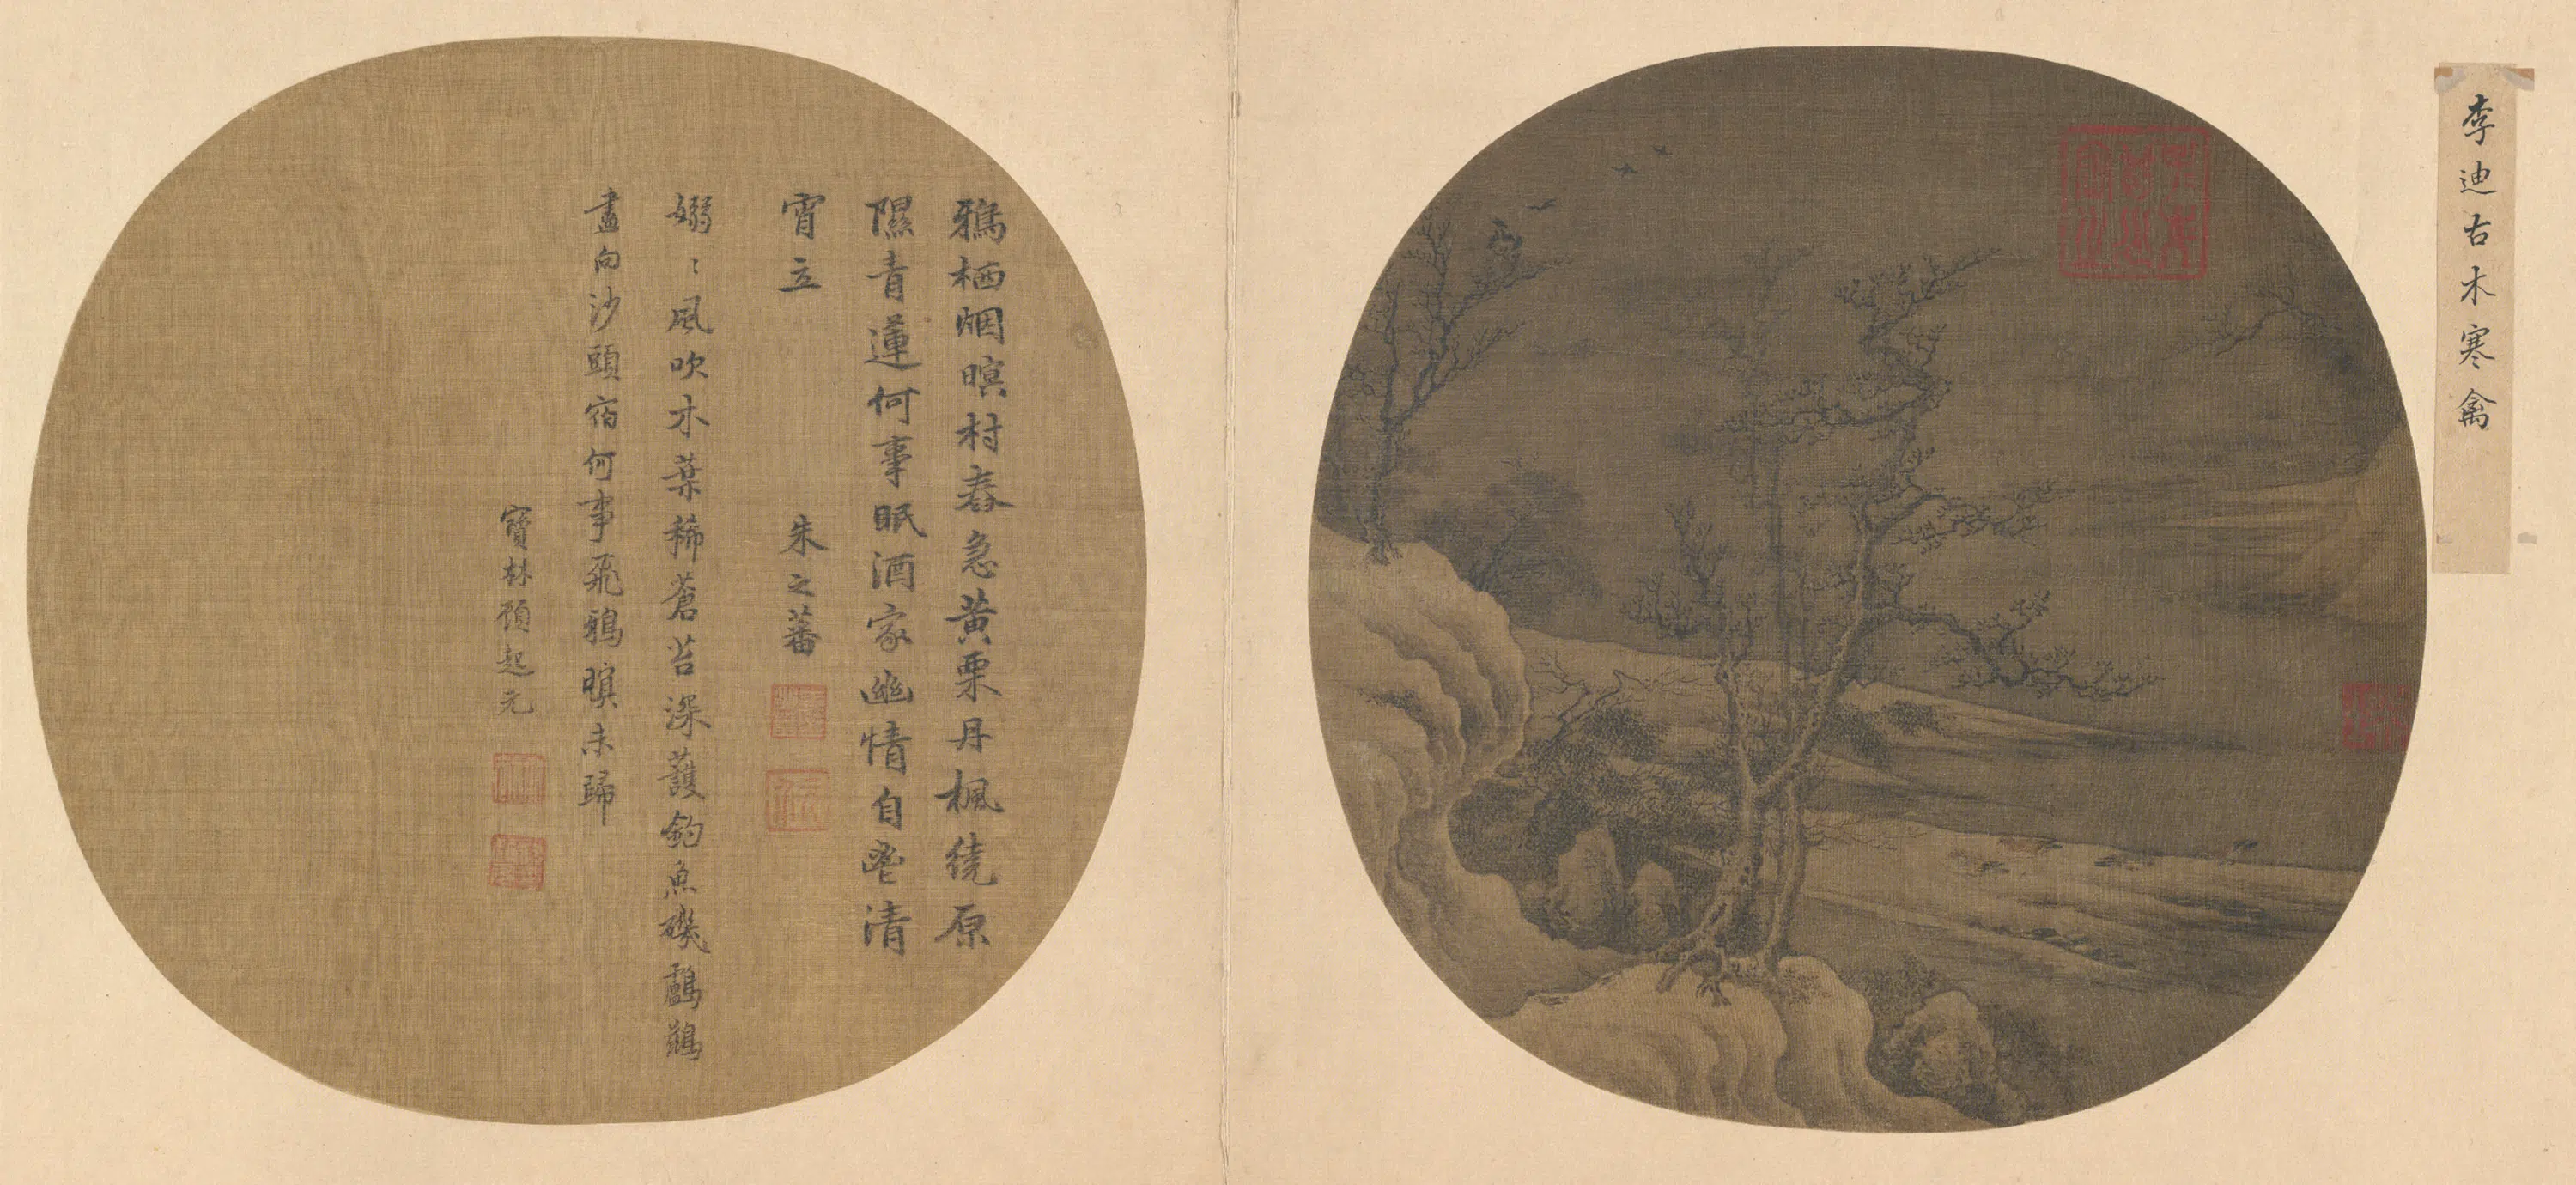 李迪古木寒禽
鴉栖烟暝村舂急黄栗丹楓繞原
隰青蓮何事眠酒家幽情自與清
宵立
朱之蕃
嫋〻風吹木葉稀蒼苔深護釣魚磯鸕鶿
盡向沙頭宿何事飛鴉暝未歸
寶林顧起元